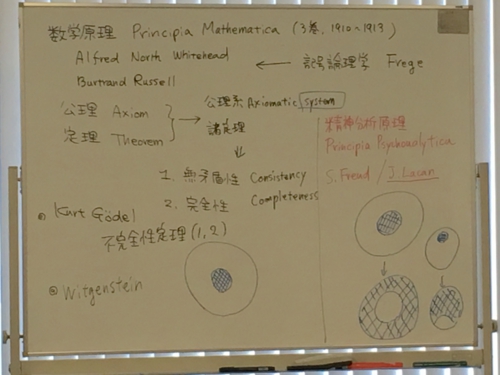 数学原理 Principia Mathematica (3巻, 1910~1913)
Alfred North Whitehead
← 記号論理学 Frege
Burtrand Russell
公理 Axiom
定理 Theorem
→ 公理系 Axiomatic system
諸定理
1. 無矛盾性 Consistency
2. 完全性 Completeness
Kurt Gödel
不完全性定理(1,2)
Witgenstein
精神分析原理
Principia Psychoanalytica
S. Freud / J. Lacan